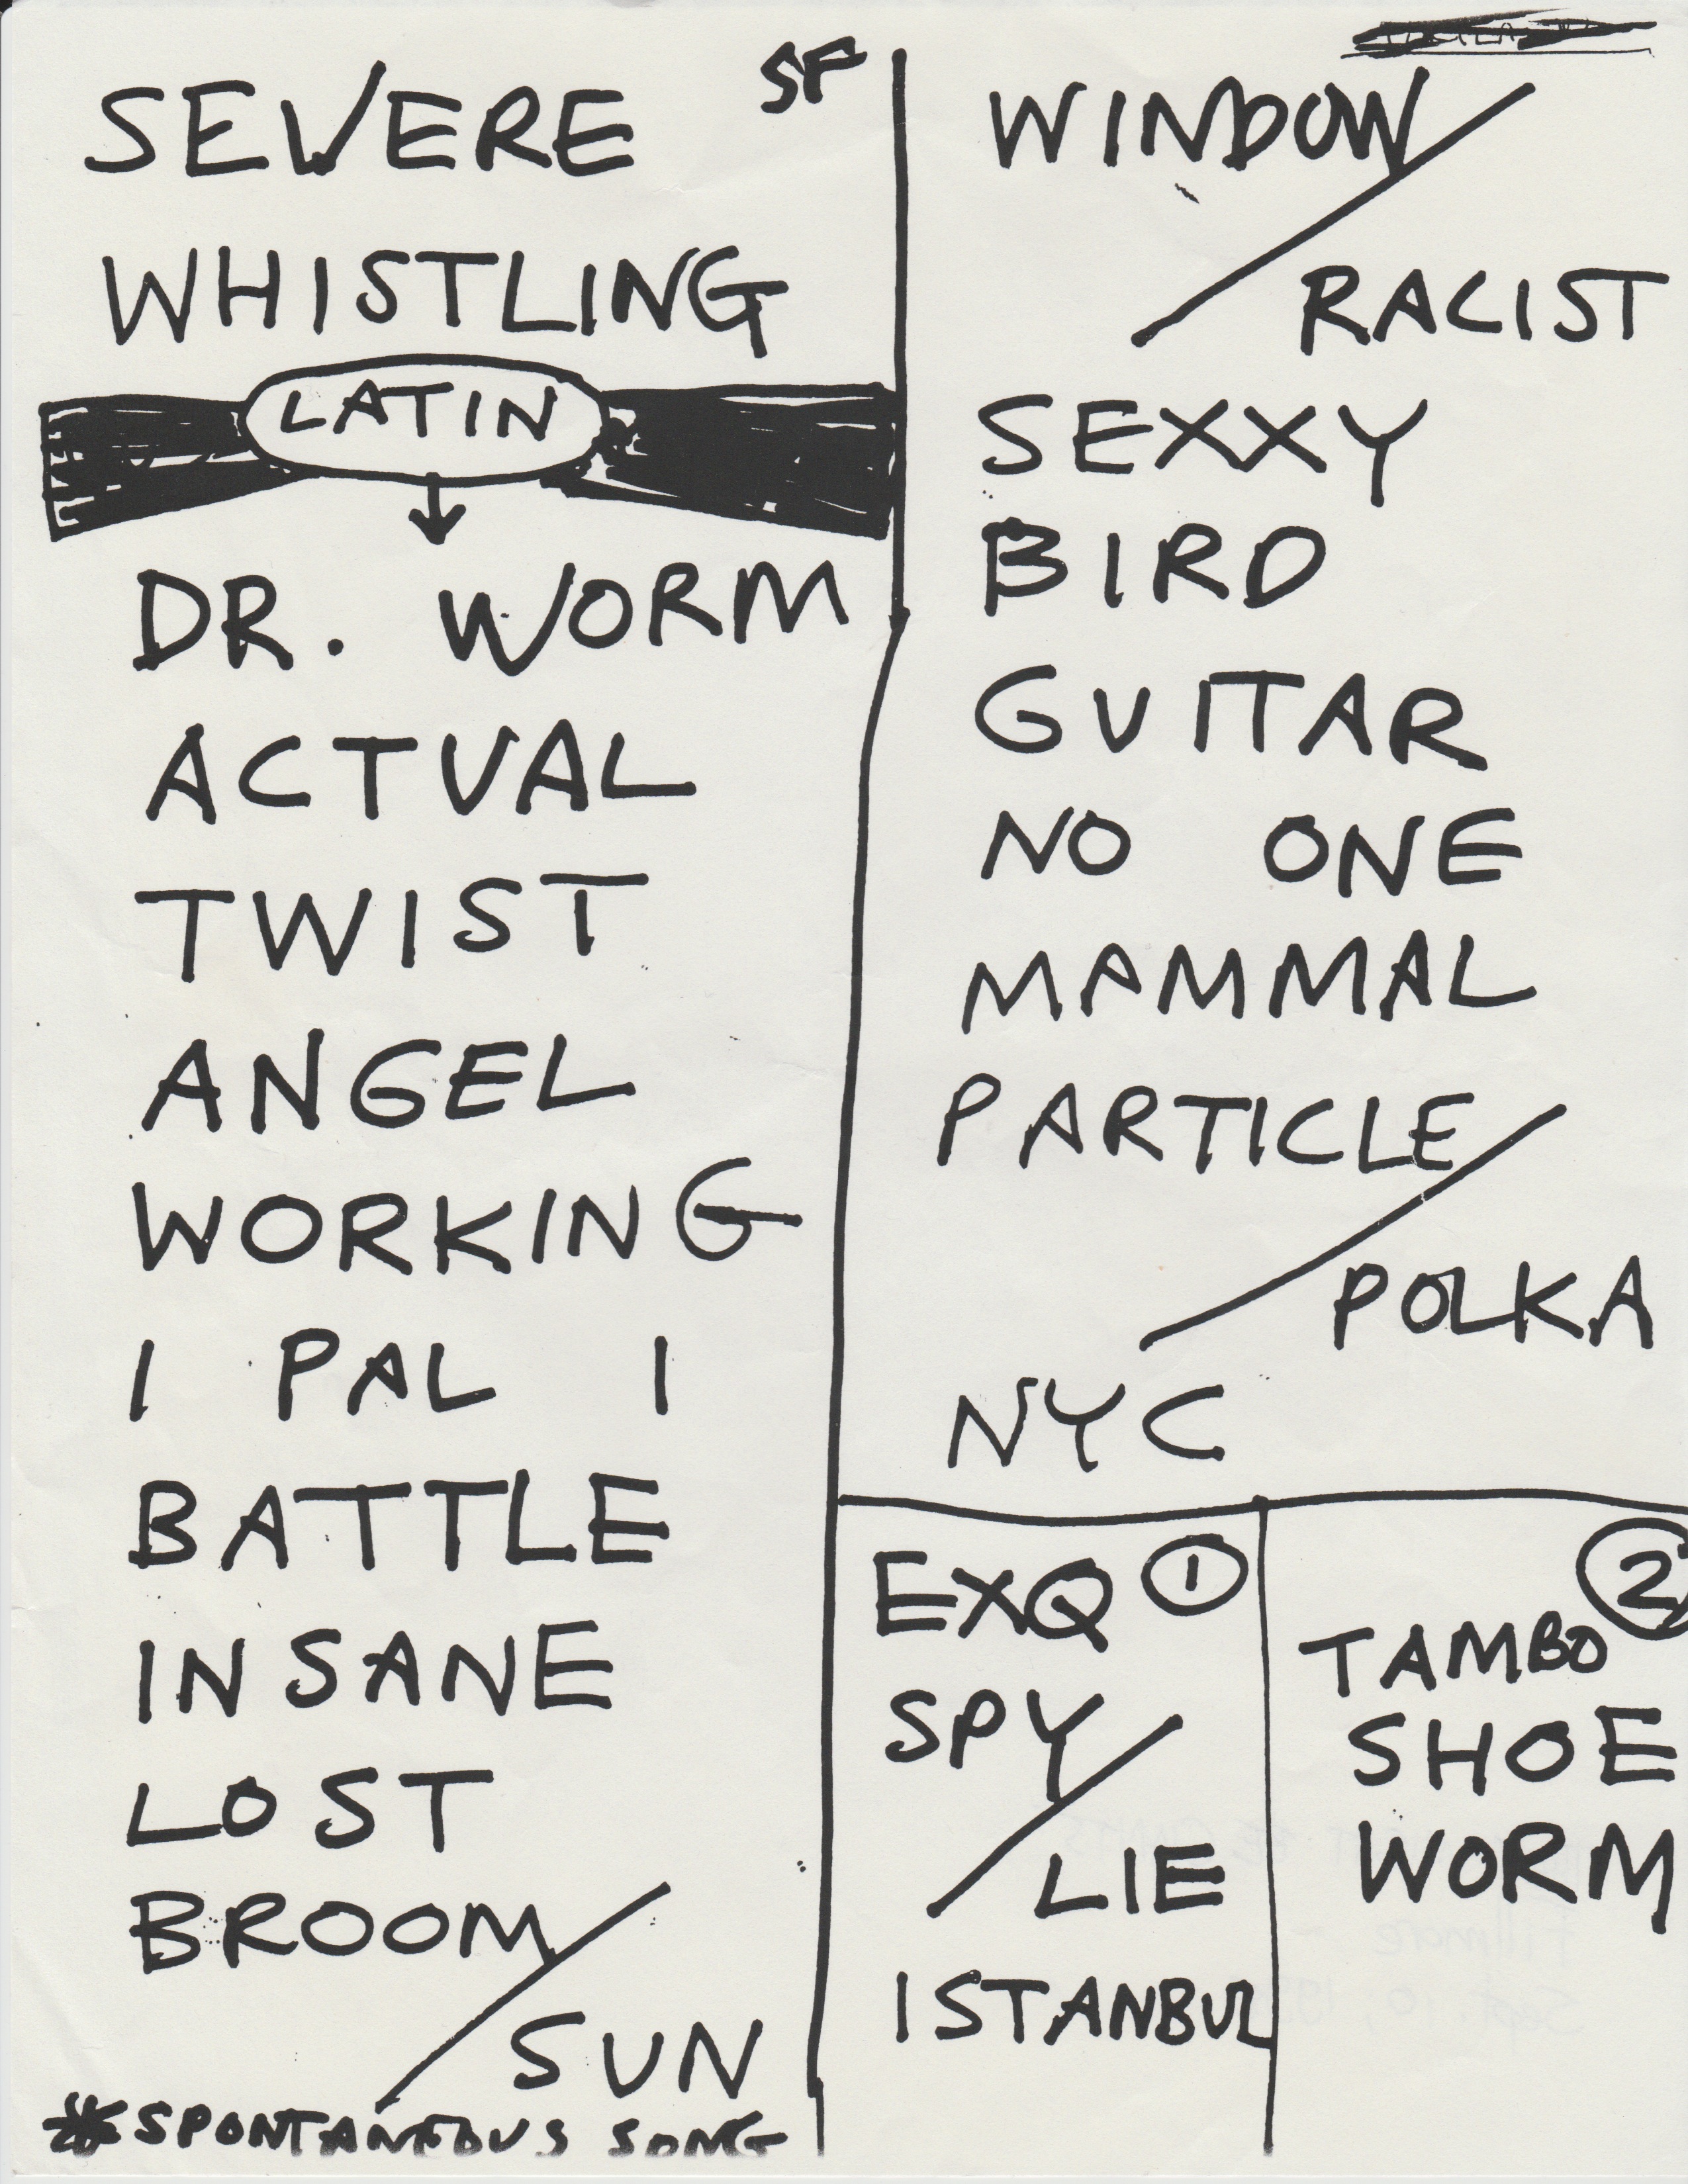 SEVERE SF
WHISTLING
LATIN
DR. WORM
ACTUAL
TWIST
ANGEL
WORKING
I PAL I
BATTLE
INSANE
LOST
BROOM /
SUN
*SPONTANEOUS SONG
WINDOW /
RACIST
SEXXY
BIRD
GUITAR
NO ONE
MAMMAL
PARTICLE /
POLKA
NYC
EXQ 1
SPY /
LIE
ISTANBUL
2
TAMBO
SHOE
WORM
Fillmore -